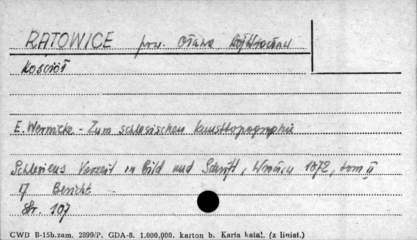 RATOWICE pow. Oława woj. Wrocław
Kościół
E. Wernicke - Zum schlesischen Kunsttopographie
Schlesiens Vorzeit in Bild und Schrift, Wrocław 1872, tom II
17 Bericht
Str. 107
CWD B-15b.zam. 2899/P. GDA-8. 1.000.000. karton b. Karta katal. (z liniat.)